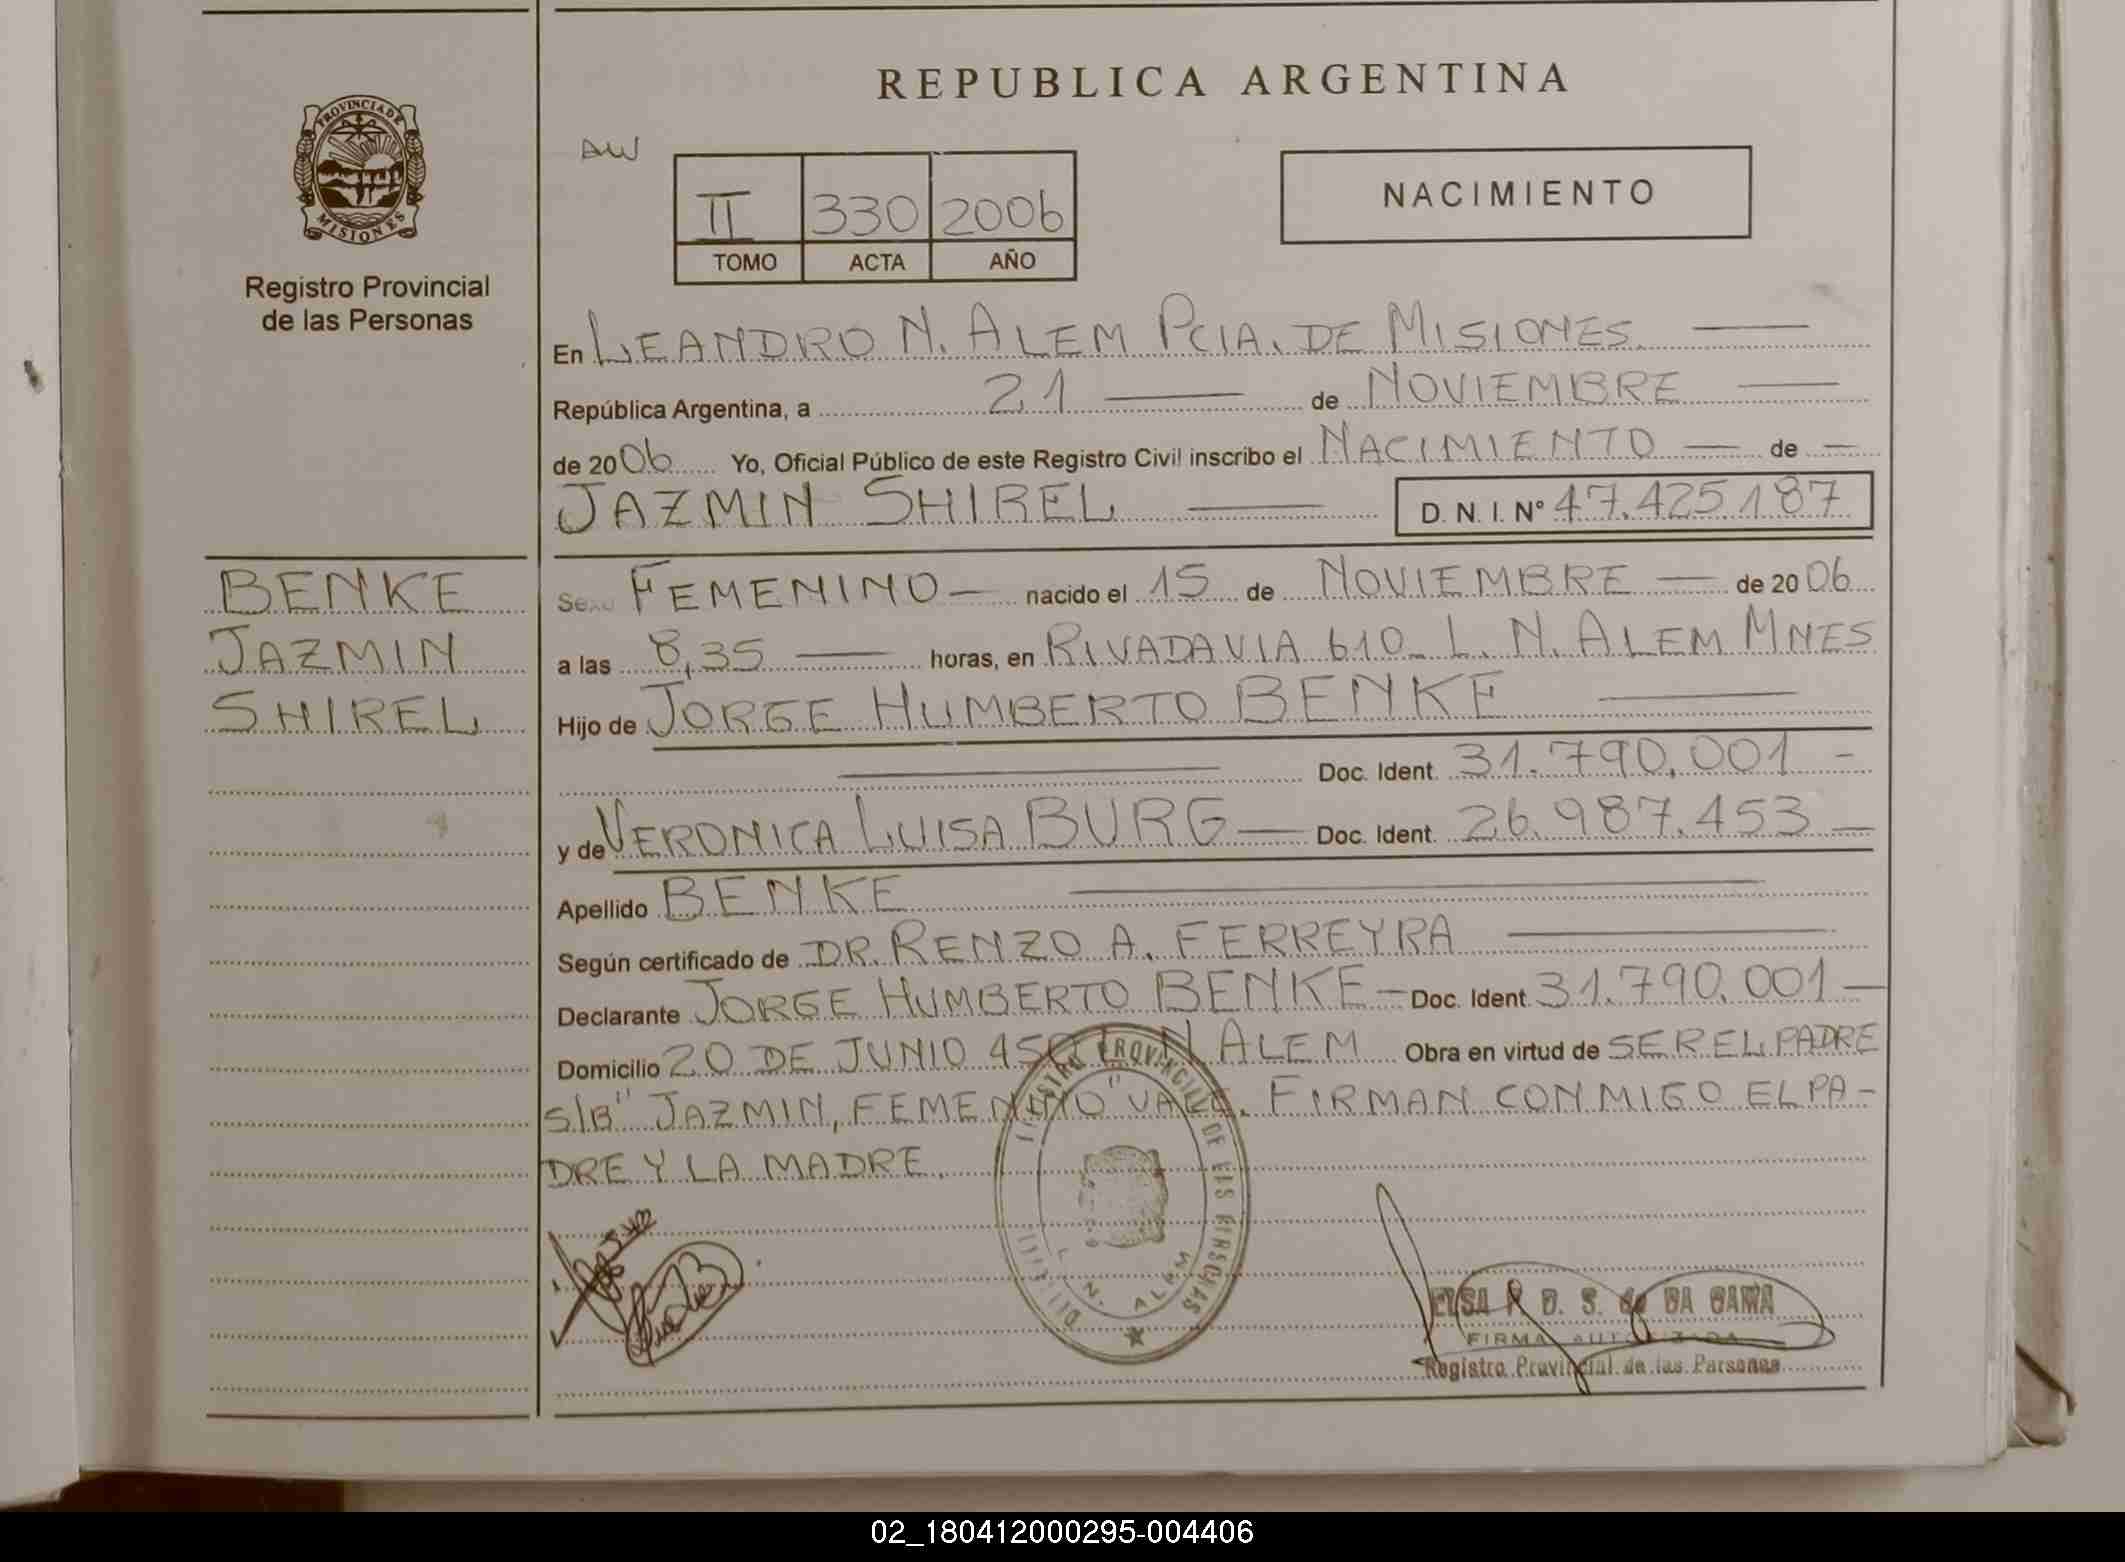 REPUBLICA ARGENTINA
PROVINCIA DE
MISIONES
AW
II 330 2006
TOMO ACTA AÑO
NACIMIENTO
Registro Provincial
de las Personas
En LEANDRO N. ALEM PCIA. DE MISIONES.
República Argentina, a 21 de NOVIEMBRE
de 2006 Yo, Oficial Público de este Registro Civil inscribo el NACIMIENTO de
JAZMIN SHIREL D. N. I. Nº 47.425.187
BENKE
JAZMIN
SHIREL
Sexo FEMENINO nacido el 15 de NOVIEMBRE de 2006
a las 8,35 horas, en RIVADAVIA 610 - L. N. ALEM MNES
Hijo de JORGE HUMBERTO BENKE
Doc. Ident. 31.790.001 -
y de VERONICA LUISA BURG Doc. Ident. 26.987.453
Apellido BENKE
Según certificado de DR. RENZO A. FERREYRA
Declarante JORGE HUMBERTO BENKE - Doc. Ident. 31.790.001
Domicilio 20 DE JUNIO 450 L. N. ALEM Obra en virtud de SER EL PADRE
S/B " JAZMIN, FEMENINO " VALE. FIRMAN CONMIGO EL PA-
DRE Y LA MADRE.
REGISTRO PROVINCIAL DE LAS PERSONAS
L. N. ALEM
D. S. de DA GAMA
FIRMA AUTORIZADA
Registro Provincial de las Personas
02_180412000295-004406